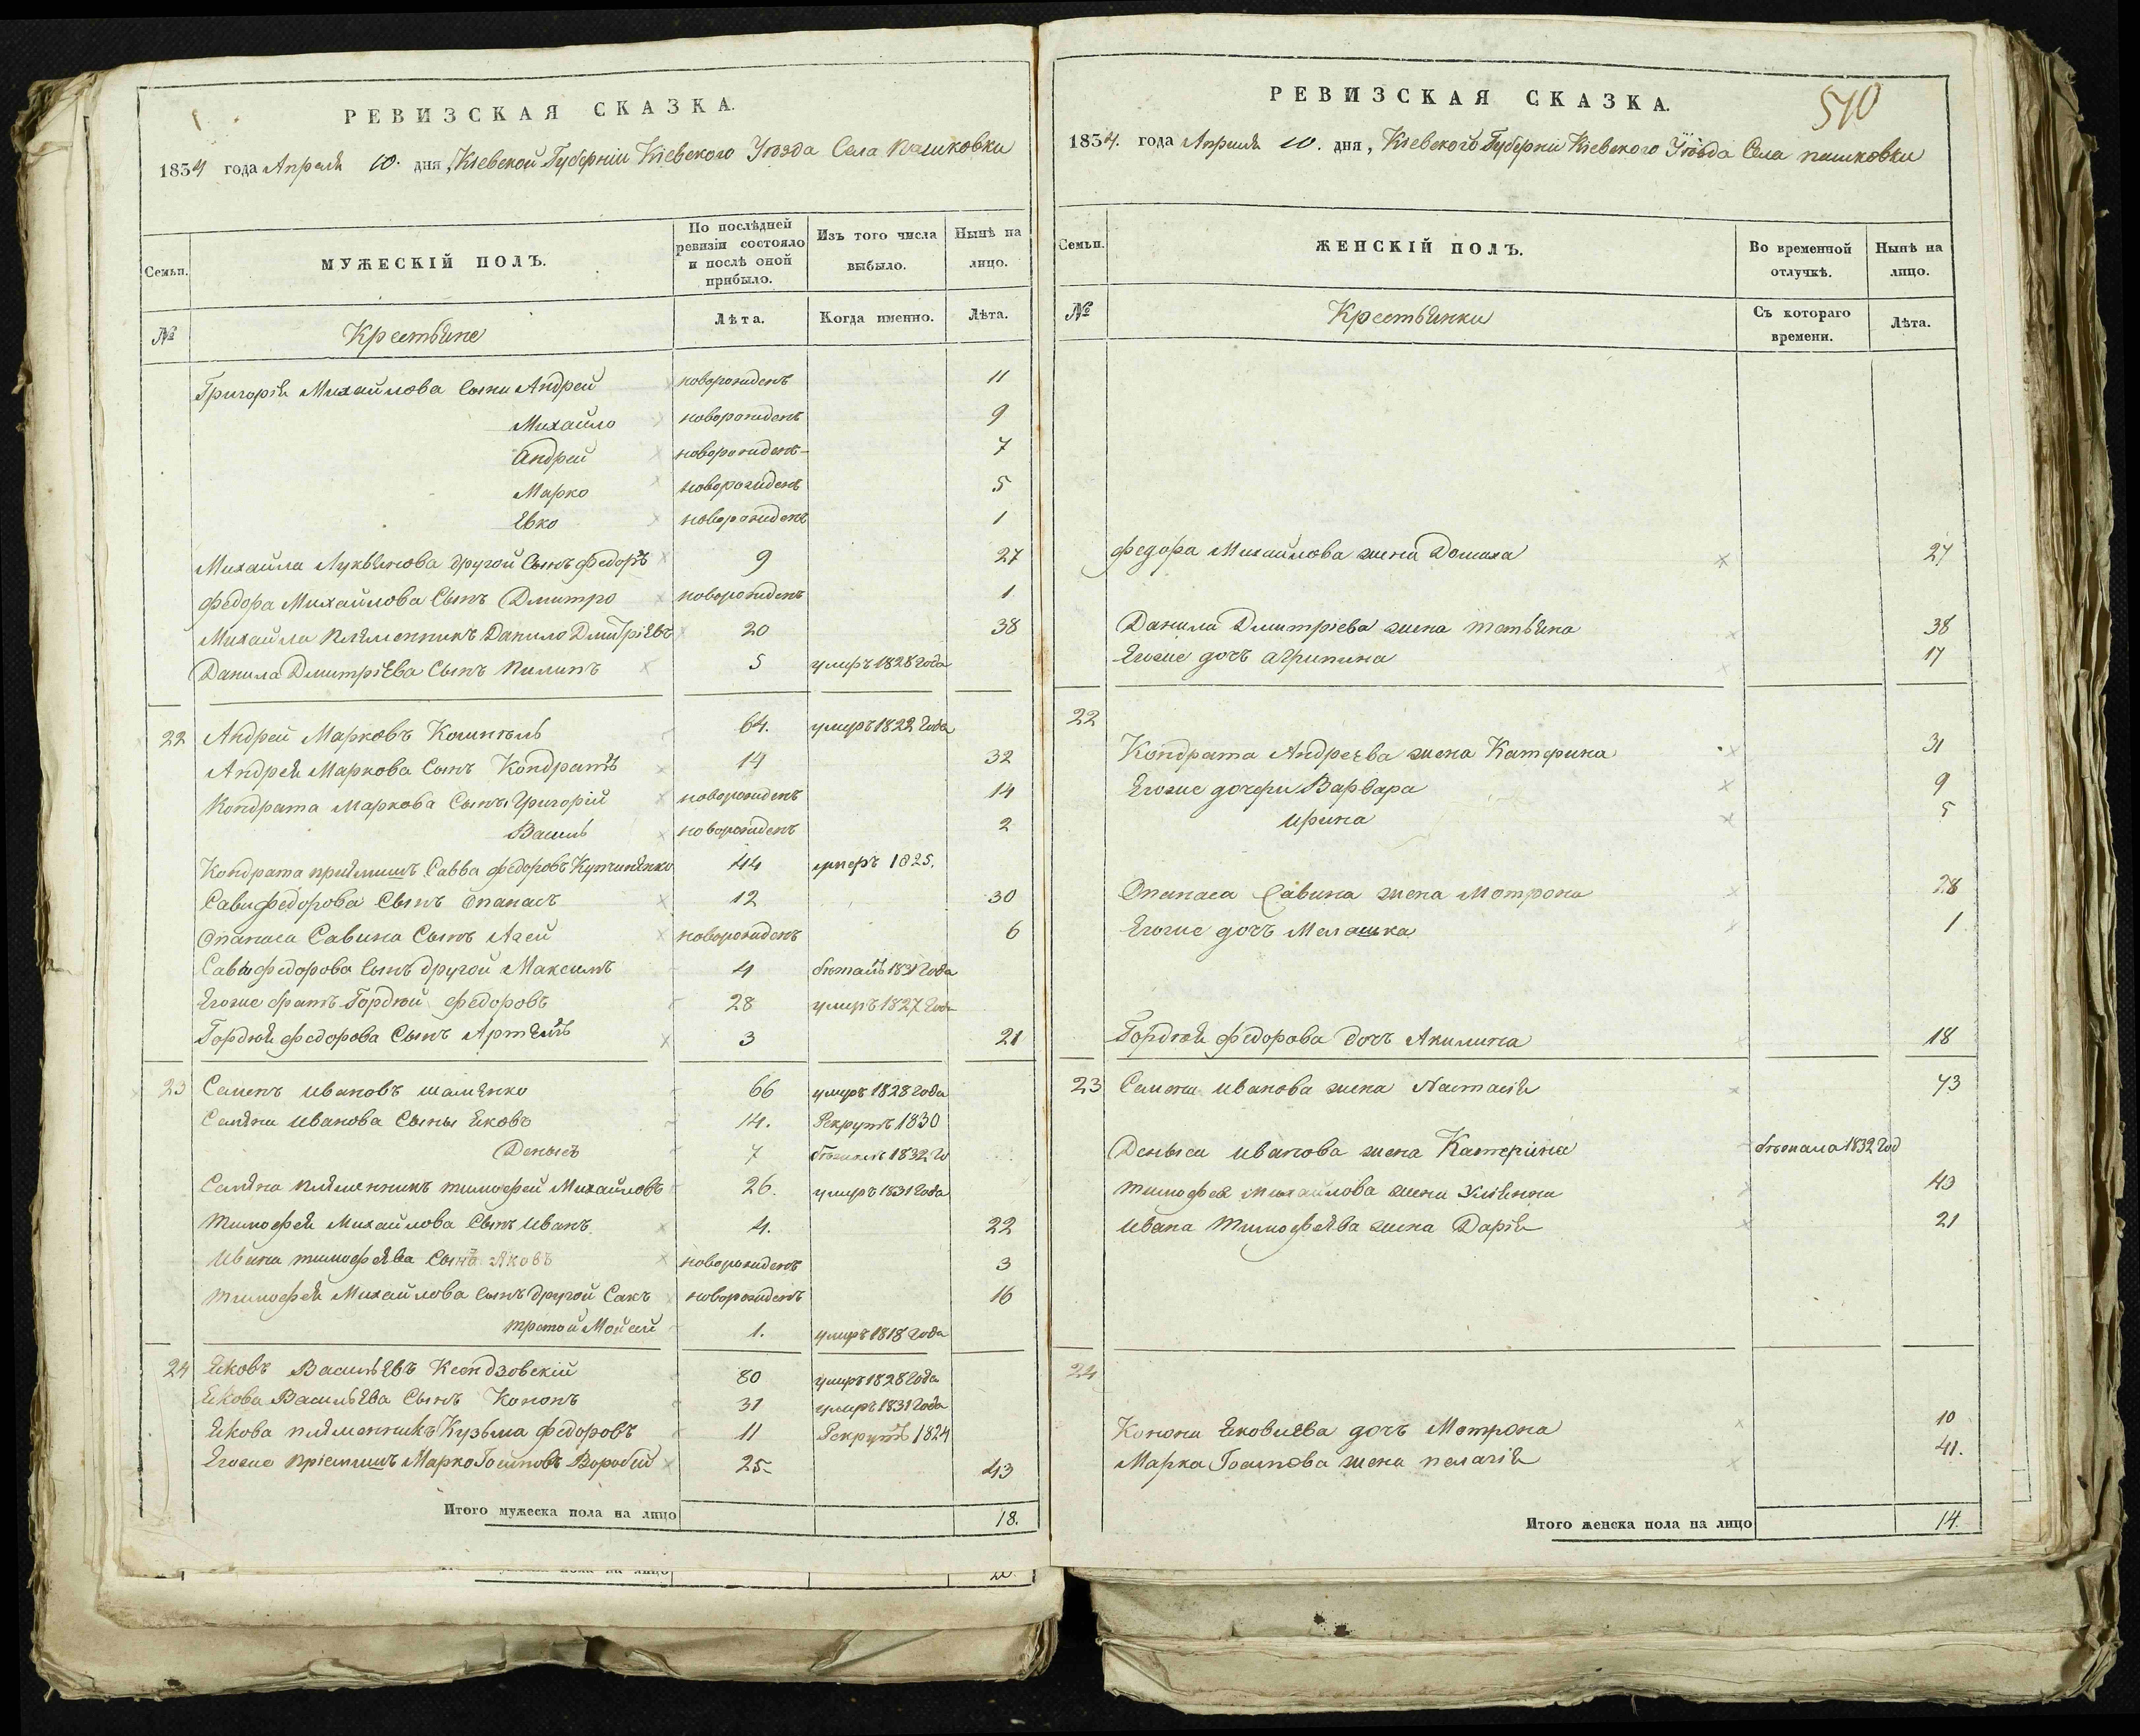 РЕВИЗСКАЯ СКАЗКА.
1834 года Апреля 10. дня, Кіевской Губерніи Кіевского Уѣзда Села Пашковки
Семьи.
МУЖЕСКІЙ ПОЛЪ.
По послѣдней ревизіи состояло и послѣ оной прибыло.
Изъ того числа выбыло.
Нынѣ на лицо.
№
Крестьяне
Лѣта.
Когда именно.
Лѣта.
Григорія Михайлова сыни Андрей новорожденъ 11
Михайло новорожденъ 9
Андрей новорожденъ 7
Марко новорожденъ 5
новорожденъ 1
Михаила Лукьянова другой Сынъ федоръ 9 27
федора Михайлова Сынъ Дмитро новорожденъ 1
Михаила племенникъ Данило Дмитріевъ 20 38
Данила Дмитріева Сынъ Пилипъ 5 умеръ 1828 года
22 Андрей Марковъ 64. умеръ 1822 года
Андрея Маркова Сынъ Кондратъ 14 32
Кондрата Маркова Сыны Григорій новорожденъ 14
Василь новорожденъ 2
Кондрата пріемишъ Савва федоровъ 44 умеръ 1825.
Савы федорова Сынъ Опанасъ 12 30
Опанаса Савина Сынъ новорожденъ 6
Савы федорова Сынъ другой Максимъ 4 1831 года
Егоже братъ Гордѣй федоровъ 28 умеръ 1827 года
Гордѣя федорова Сынъ Артемъ 3 21
23 Семенъ Ивановъ 66 умеръ 1828 года
Семена Иванова Сыны Яковъ 14. Рекрутъ 1830
Денысъ 7 бѣжалъ 1832 го
Семена племенникъ тимофей Михайловъ 26. умеръ 1831 года
тимофея Михайлова Сынъ Иванъ 4. 22
Ивана тимофеева Сынъ Яковъ новорожденъ 3
тимофея Михайлова Сынъ другой Сакъ новорожденъ 16
третой Мойсей 1. умеръ 1818 года
24 Яковъ Васильевъ 80 умеръ 1828 года
Якова Васильева Сынъ Кононъ 31 умеръ 1831 года
Якова племенникъ Кузьма федоровъ 11 Рекрутъ 1824
Егоже пріемишъ Марко Воробей 25 43
Итого мужеска пола на лицо 18.
РЕВИЗСКАЯ СКАЗКА.
510
1834. года Апреля 10. дня, Кіевского Губерніи Кіевского Уѣзда Села пашковки
Семьи.
ЖЕНСКІЙ ПОЛЪ.
Во временной отлучкѣ.
Нынѣ на лицо.
№
Крестьянки
Съ котораго времени.
Лѣта.
федора Михайлова жена Домаха 27
Данила Дмитріева жена татьяна 38
Егоже дочъ агрипина 17
22
Кондрата Андреева жена Катерина 31
Егоже дочери Варвара 9
ирина 5
Опанаса Савина жена Мотрона 28
Егоже дочъ Мелашка 1
Гордѣя федорова дочъ Акилина 18
23 Семена Иванова жена Настасія 73
Деныса иванова жена Катерина бѣжала 1832 год
тимофея Михайлова жена 43
ивана тимофеева жена Дарія 21
24
Конона Яковлева дочъ Мотрона 10
Марка жена пелагія 41.
Итого женска пола на лицо 14.